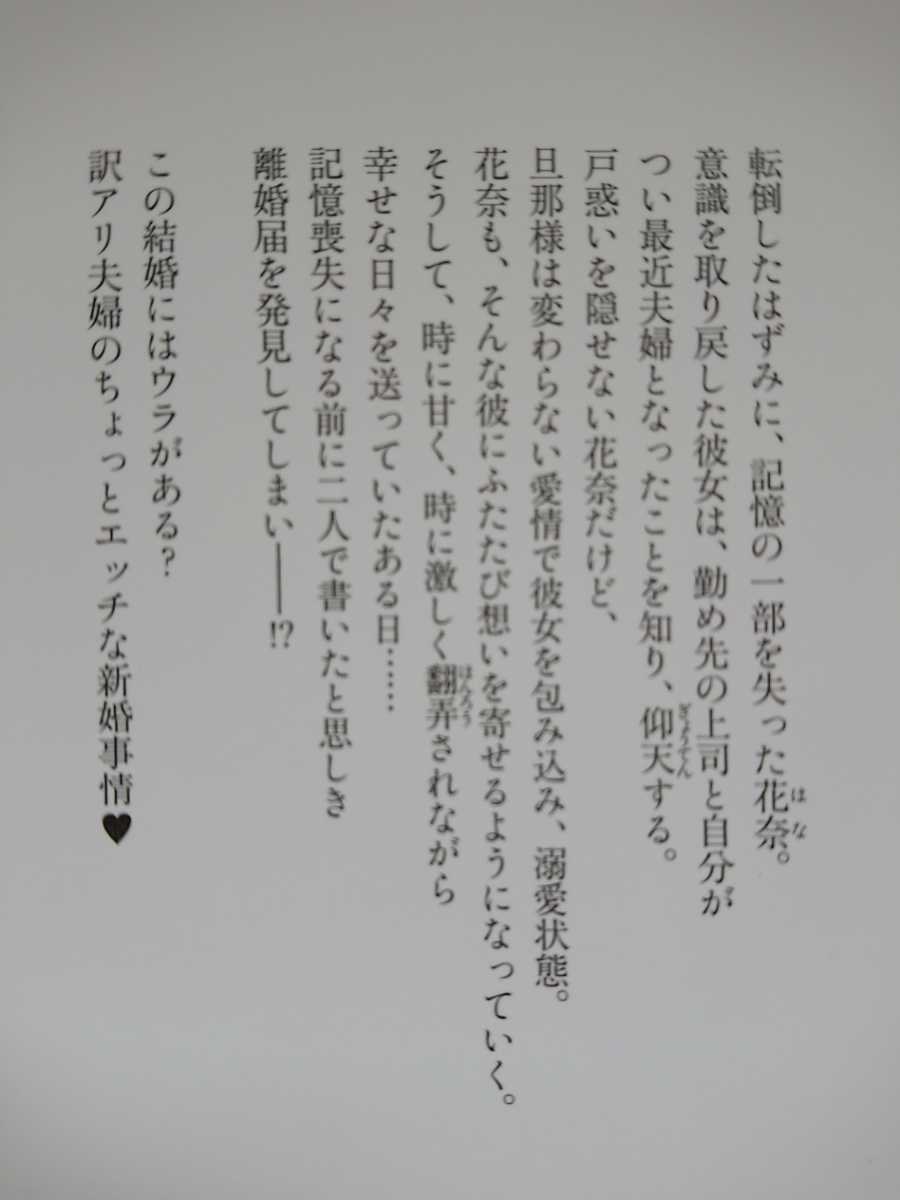 転倒したはずみに、記憶の一部を失った花奈。
意識を取り戻した彼女は、勤め先の上司と自分が
つい最近夫婦となったことを知り、仰天する。
戸惑いを隠せない花奈だけど、
旦那様は変わらない愛情で彼女を包み込み、溺愛状態。
花奈も、そんな彼にふたたび想いを寄せるようになっていく。
そうして、時に甘く、時に激しく翻弄されながら
幸せな日々を送っていたある日……
記憶喪失になる前に二人で書いたと思しき
離婚届を発見してしまい――!?
この結婚にはウラがある?
訳アリ夫婦のちょっとエッチな新婚事情♥